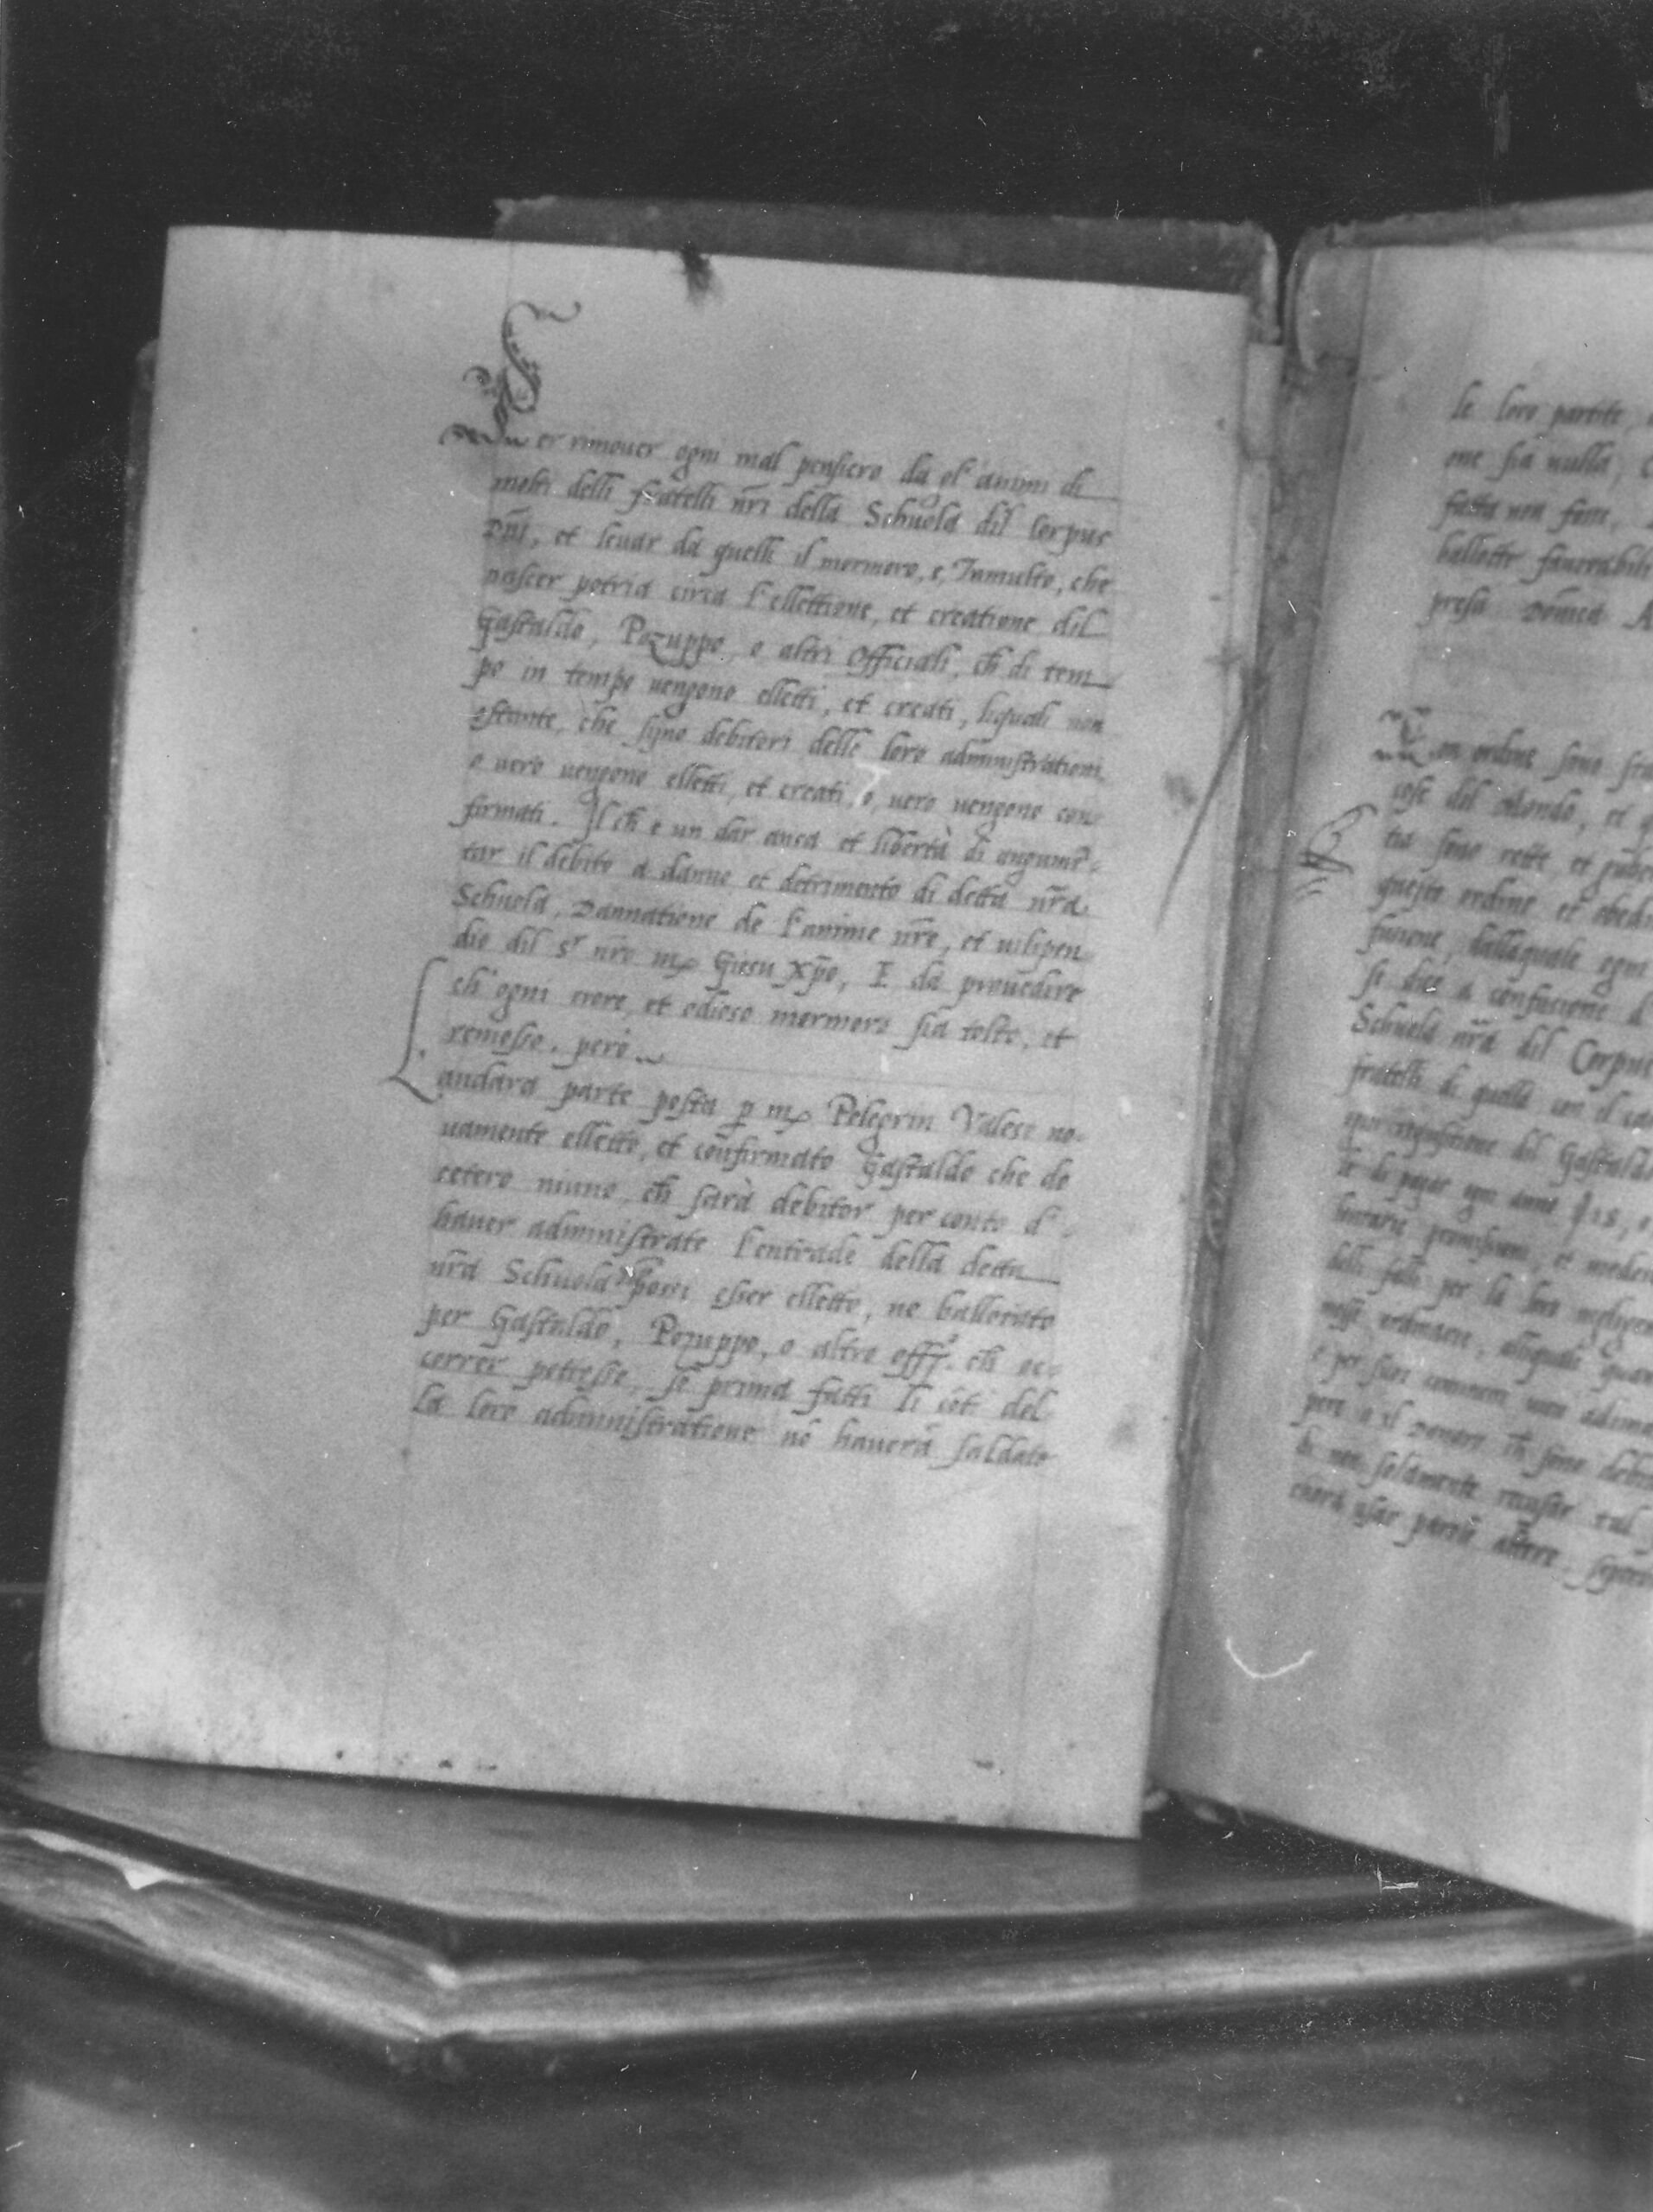 Per rimover ogni mal pensiero da gl' animi di
molti delli fratelli nr̃i della Schuola dil Corpus
Dñi, et levar da quelli il mormoro, e, Tumulto, che
nascer potria circa l'ellettione, et creatione dil
Gastaldo, Pozuppo, o altri Officiali, ch̃ di tem
po in tempo vengono elletti, et creati, liquali non
ostante, che sijno debitori delle loro administrationi
o vero vengono elletti, et creati, o, vero vengono con
firmati. Il ch̃ e un dar ansa et libertà di augumẽ
tar il debito a danno et detrimento di detta nr̃a
Schuola, Dannatione de l'anime nr̃e, et vilipen
dio dil sr nro mr Giesu Xp̃o, E da provedere
ch' ogni rore, et odioso mormoro sia tolto, et
remosso. però
andara parte posta p mr Pelegrin Valese no
vamente elletto, et confirmato Gastaldo che de
cetero niuno, ch̃ sarà debitor per conto d'
haver administrate l'entrade della detta
nr̃a Schuola possi esser elletto, ne ballotato
per Gastaldo, Pozuppo, o altro offo. ch̃ oc
correr potesse, se prima fatti li cõti del
la loro administratione nõ haverà saldato
le loro partite,
one sia nulla,
fatta non fosse,
ballotte faurabili
presa Domẽca A
con ordine sono
cose del Mondo, et
tia sono rette, et
questo ordine et obedi
fusione, dallaquale ogni
si dice a confusione d
Schuola nr̃a dil Corpus
fratelli di quella con il
dil Gastaldo
te di pagar ogni anno 18,
et
delli per la loro negligen
quan
e per suoi
Denari ch̃ sono debi
di non solamente recusar tal
chora usar parole altre